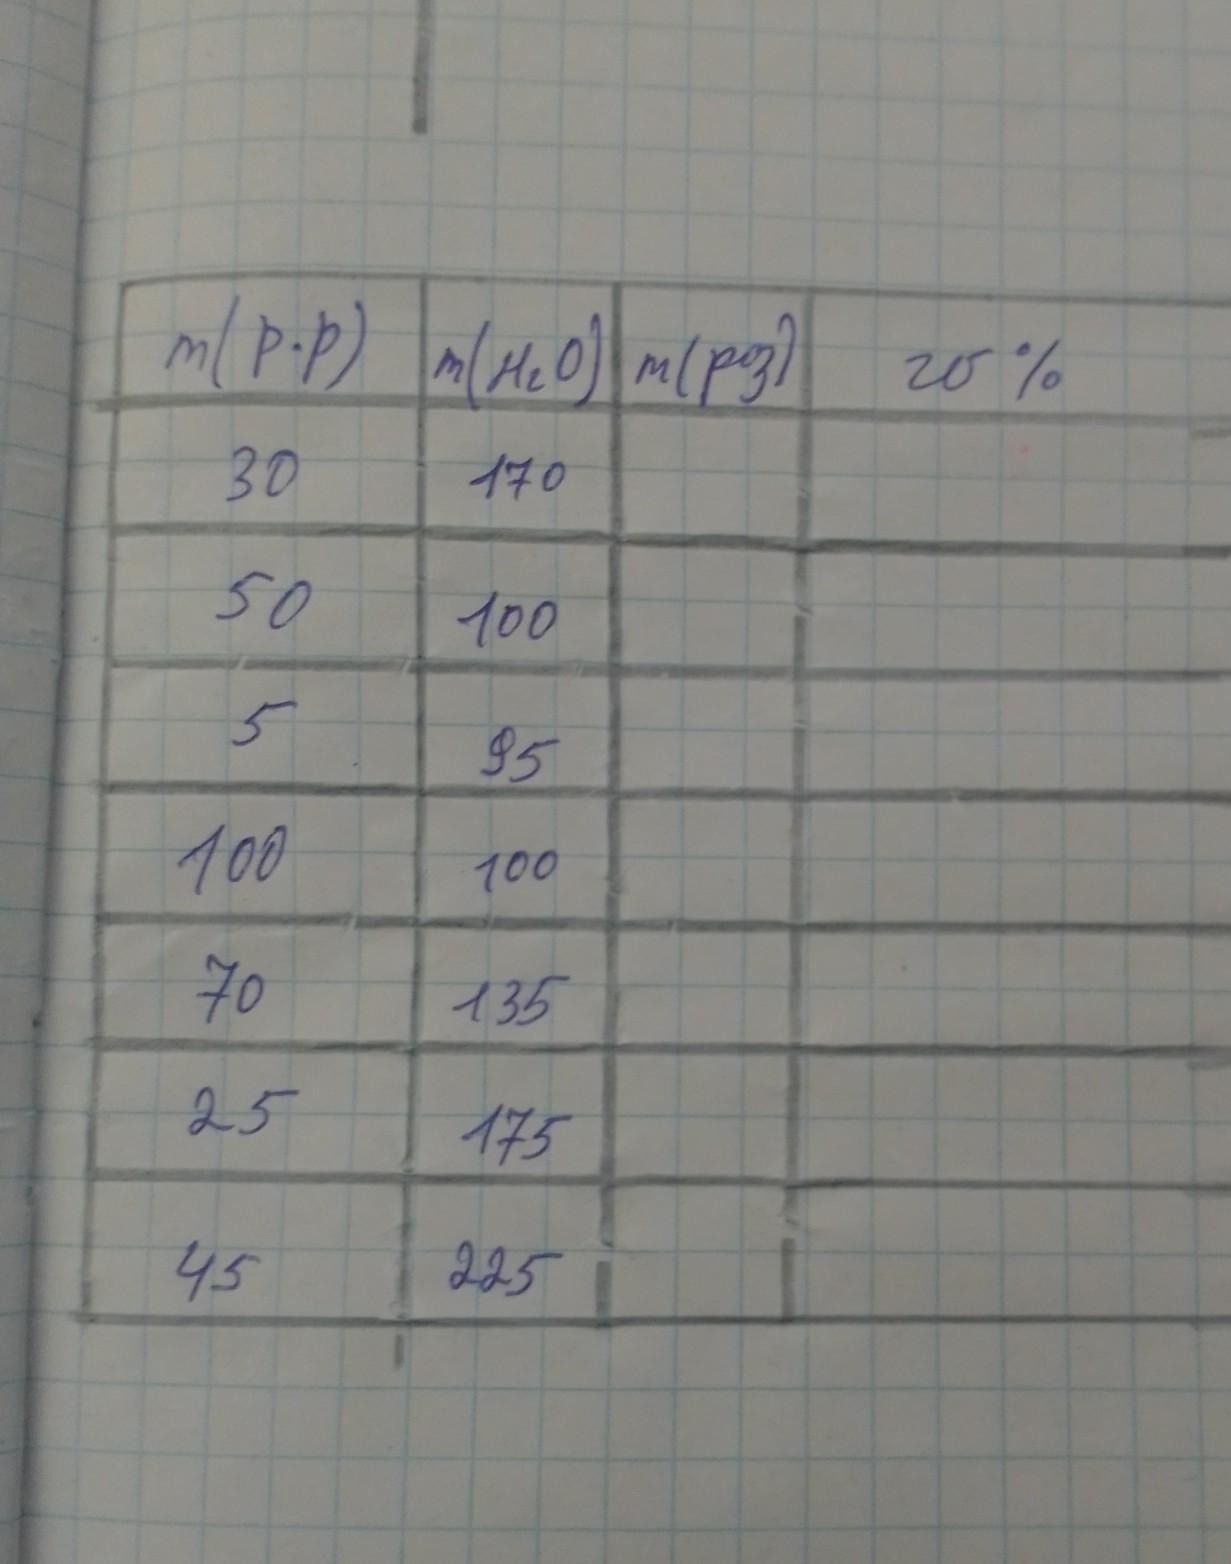 m(p.p) m(H₂O) m(рз) w %
30 170
50 100
5 95
100 100
70 135
25 175
45 225